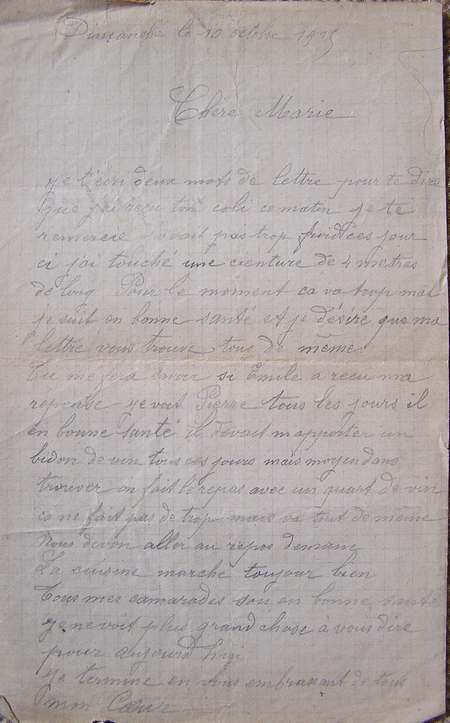 Dimanche le 10 octobre 1915
Chere Marie
je t'ecri deux mots de lettre pour te dire
que j'ai recu ton coli ce matin je te
remercie avait pas trop froid ces jour
ci j'ai touché une cienture de 4 metres
de long Pour le moment ca va trop mal
je suit en bonne santé et je désire que ma
lettre vous trouve tous de meme
Tu me fera savoir si Emile a recu ma
reponse je voit Pierre tous les jours il
en bonne santé il devait m'apporter un
bidon de vin tous ces jours mais moyen dans
trouver on fait le repas avec un quart de vin
ca ne fait pas de trop mais va tout de meme
Nous devon aller au repos demain
La cuisine marche toujour bien
Tous mes camarades son en bonne santé
je ne voit plus grand chose à vous dire
pour aujourd'hui
Je termine en vous embrassant de tous
mon Coeur